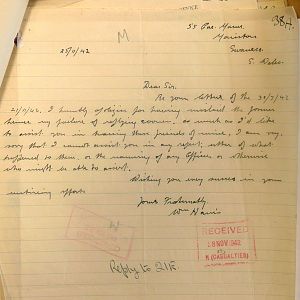 M
55 Pen
Swansea
S. Wales.
Dear Sir,
Re your letter of the 31/7/42
I humbly apologise for having mislaid the forms
hence my failure of replying sooner, as much as I'd like
to assist you in tracing these friends of mine, I am very
sorry that I cannot assist you in any respect, either of what
happened to them, or the of any Officer or otherwise
who might be able to assist.
Wishing you every success in your
untiring efforts
Yours Fraternally,
Wm Harris
RECEIVED
NOV 1942
(CASUALTIES)
Reply to